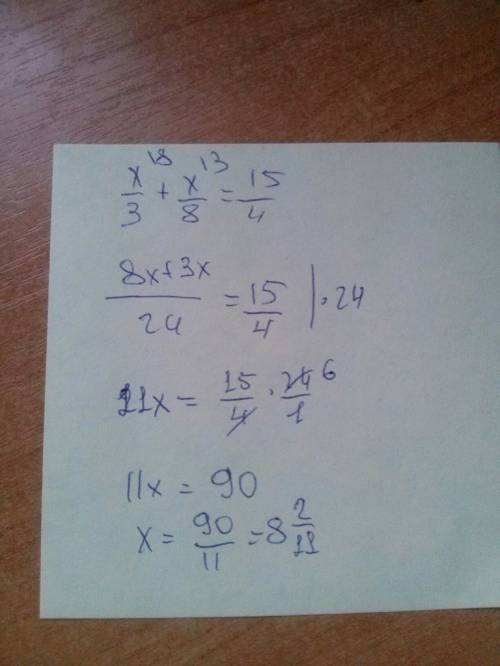 x/3 \8 + x/8 \3 = 15/4
(8x+3x)/24 = 15/4 | · 24
11x = 15/4 · 24/1 6
11x = 90
x = 90/11 = 8 2/11